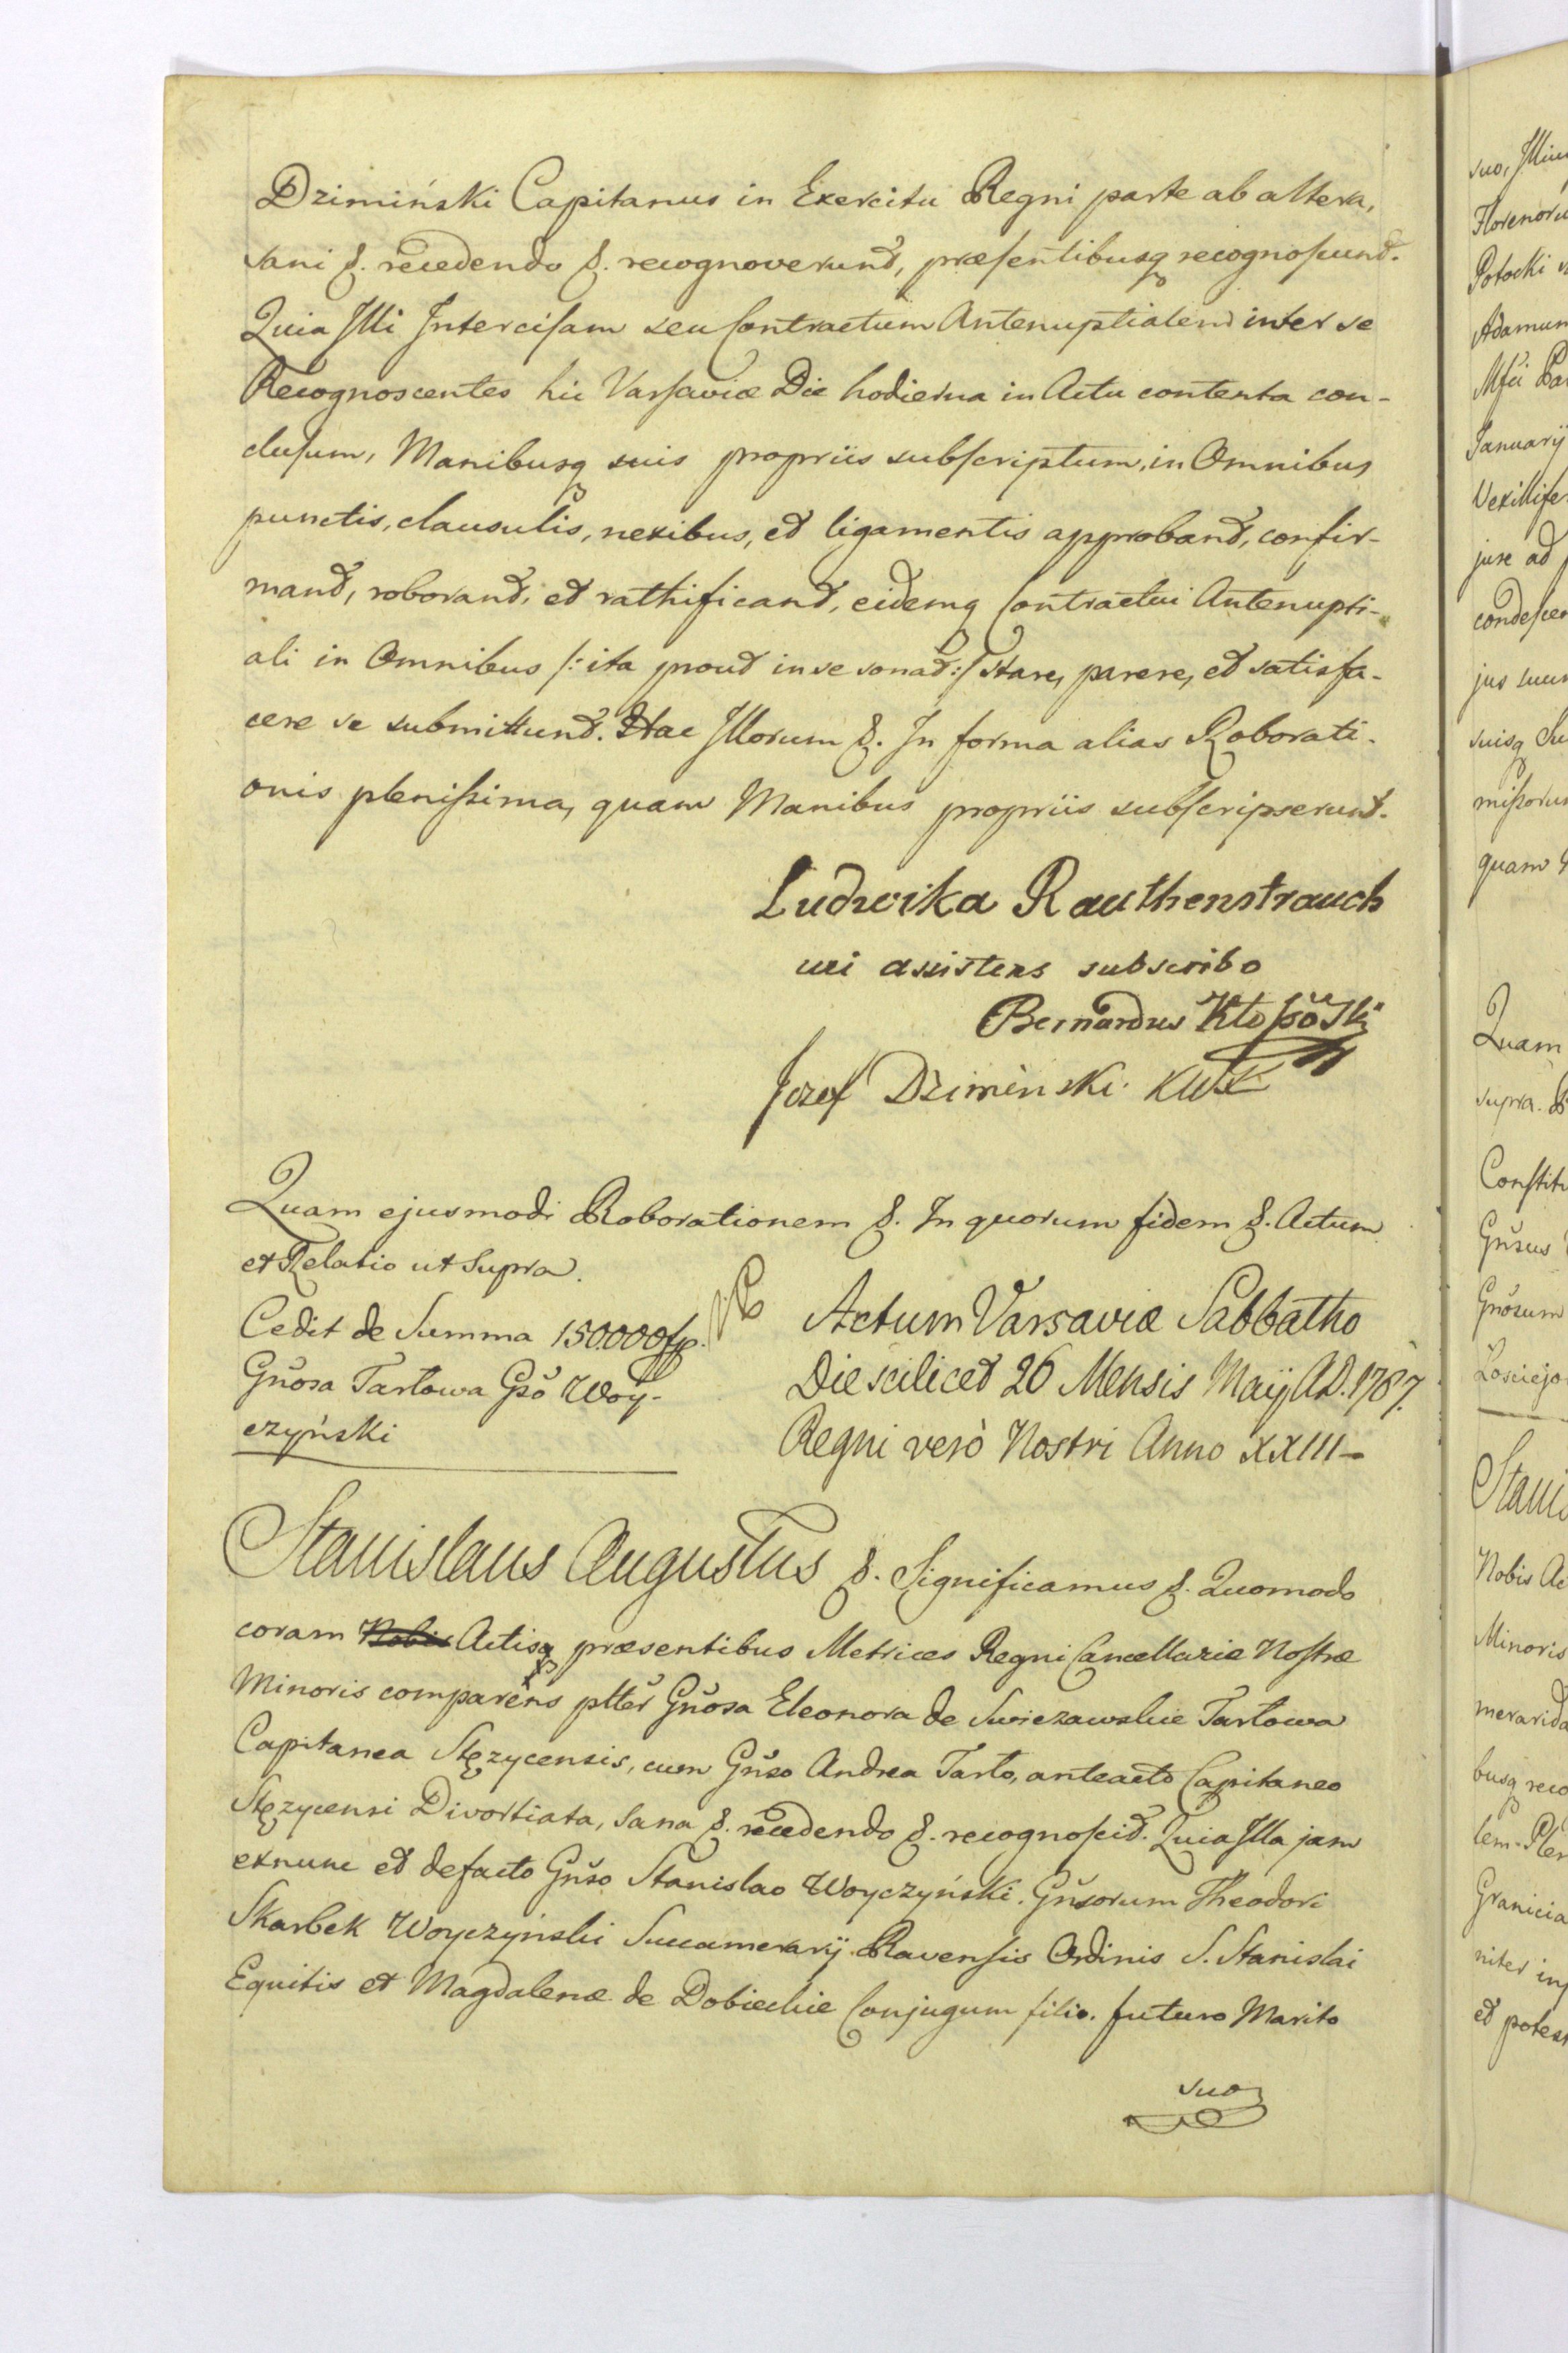 Dzimiński Capitanus in Exercitu Regni parte ab altera,
sani &. recedendo &. recognoverunt, præsentibusq recognoscunt.
Quia Illi Intercisam seu Contractum Antenuptialem inter se
Recognoscentes hic Varsaviæ Die hodierna in Actu contenta con-
clusum, Manibusq suis propriis subscriptum, in Omnibus
punctis, clausulis, nexibus, et ligamentis approbant, confir-
mant, roborant, et rathificant, eidemq Contractui Antenupti-
ali in Omnibus /: ita prout in se sonat :/ stare, parere, et satisfa-
cere se submittunt. Hac Illorum &. In forma alias Roborati-
onis plenissima, quam Manibus propriis subscripserunt.
Ludwika Rauthenstrauch
uti assistens subscribo
Bernardus
Jozef Dzimiński KWK
Quam ejusmodi Roborationem &. In quorum fidem &. Actum
et Relatio ut Supra.
Cedit de Summa 150000 fp.
Gnosa Tarłowa Gso Woy-
czyński
Actum Varsaviæ Sabbatho
Die scilicet 26 Mensis Maij A.D. 1787.
Regni verò Nostri Anno XXIII
Stanislaus Augustus &. Significamus &. Quomodo
coram Nobis Actisq præsentibus Metrices Regni Cancellariæ Nostræ
Minoris comparens ptter Gnosa Eleonora de Swiezawskie Tarłowa
Capitanea Stęzycensis, cum Gnso Andrea Tarło, anteacto Capitaneo
Stęzycensi Divortiata, sana &. recedendo &. recognoscit. Quia Illa jam
exnunc et defacto Gnso Stanislao Woyczyński. Gnsorum Theodori
Skarbek Woyczyński Succamerarij Ravensis Ordinis S. Stanislai
Equitis et Magdalenæ de Dobieckie Conjugum filio. futuro Marito
suo